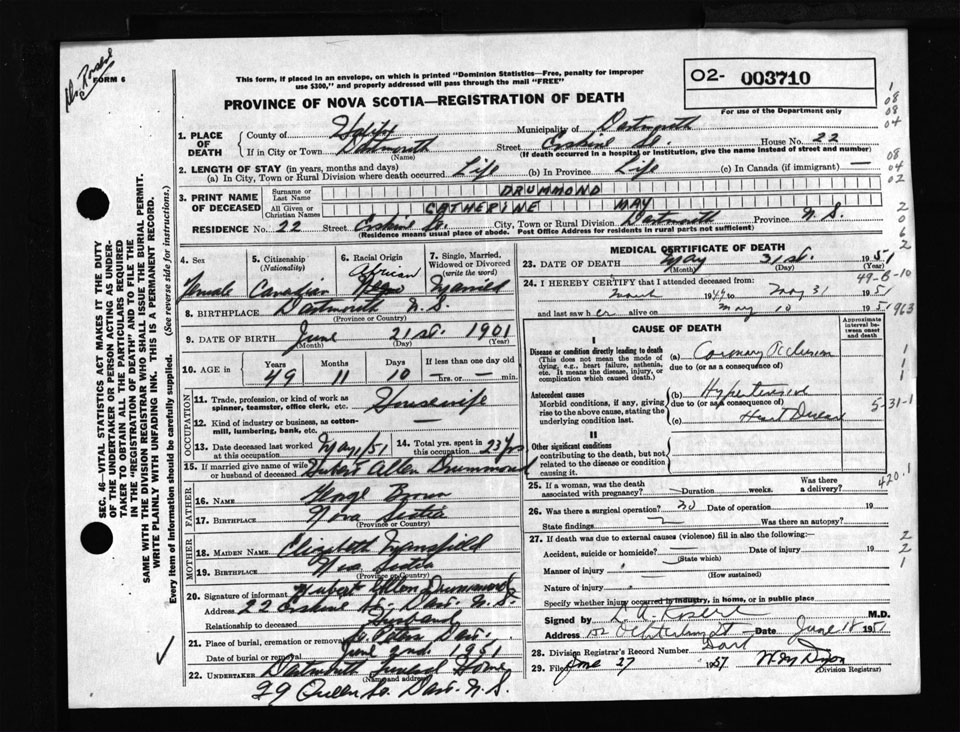 Dr. Rosere
FORM 6
This form, if placed in an envelope, on which is printed "Dominion Statistics—Free, penalty for improper
use $300," and properly addressed will pass through the mail "FREE"
O2- 003710
PROVINCE OF NOVA SCOTIA—REGISTRATION OF DEATH
For use of the Department only
1. PLACE OF DEATH
County of Halifax Municipality of Dartmouth
If in City or Town Dartmouth Street Erskine St. House No. 22
(Name) (If death occurred in a hospital or institution, give the name instead of street and number)
2. LENGTH OF STAY (in years, months and days)
(a) In City, Town or Rural Division where death occurred Life (b) In Province Life (c) In Canada (if immigrant) —
3. PRINT NAME OF DECEASED
Surname or Last Name DRUMMOND
All Given or Christian Names CATHERINE MAY
RESIDENCE No. 22 Street Erskine St. City, Town or Rural Division Dartmouth Province N.S.
(Residence means usual place of abode. Post Office Address for residents in rural parts not sufficient)
4. Sex Female
5. Citizenship (Nationality) Canadian
6. Racial Origin African Negro
7. Single, Married, Widowed or Divorced (write the word) Married
8. BIRTHPLACE Dartmouth N.S.
(Province or Country)
9. DATE OF BIRTH June 21st. 1901
(Month) (Day) (Year)
10. AGE in Years 49 Months 11 Days 10 If less than one day old — hrs. or — min.
OCCUPATION
11. Trade, profession, or kind of work as spinner, teamster, office clerk, etc. Housewife
12. Kind of industry or business, as cotton-mill, lumbering, bank, etc.
13. Date deceased last worked at this occupation May/51
14. Total yrs. spent in this occupation 23 yrs
15. If married give name of wife or husband of deceased Hubert Allen Drummond
FATHER
16. NAME George Brown
17. BIRTHPLACE Nova Scotia
(Province or Country)
MOTHER
18. MAIDEN NAME Elizabeth Mansfield
19. BIRTHPLACE Nova Scotia
(Province or Country)
20. Signature of informant Hubert Allen Drummond
Address 22 Erskine St., Dart. N.S.
Relationship to deceased Husband
21. Place of burial, cremation or removal St. Peters Dart.
Date of burial or removal June 2nd. 1951
22. UNDERTAKER Dartmouth Funeral Home
(Name and address)
29 Queen St. Dart. N.S.
MEDICAL CERTIFICATE OF DEATH
23. DATE OF DEATH May 31st. 1951
(Month) (Day) (Year)
24. I HEREBY CERTIFY that I attended deceased from
March 1949 to May 31 1951
and last saw her alive on May 10 1951
CAUSE OF DEATH
Approximate interval between onset and death
I
Disease or condition directly leading to death
(This does not mean the mode of dying, e.g., heart failure, asthenia, etc. It means the disease, injury, or complication which caused death.)
(a) Coronary Occlusion
due to (or as a consequence of)
Antecedent causes
Morbid conditions, if any, giving rise to the above cause, stating the underlying condition last.
(b) Hypertensive
due to (or as a consequence of)
(c) Heart Disease
II
Other significant conditions
contributing to the death, but not related to the disease or condition causing it.
25. If a woman, was the death associated with pregnancy? — Duration weeks. Was there a delivery?
26. Was there a surgical operation? no Date of operation 19
State findings Was there an autopsy?
27. If death was due to external causes (violence) fill in also the following:—
Accident, suicide or homicide? Date of injury 19
(State which)
Manner of injury
(How sustained)
Nature of injury
Specify whether injury occurred in industry, in home, or in public place
Signed by M.D.
Address Date June 18 1951
28. Division Registrar's Record Number Dart
29. Filed June 27 1951
(Division Registrar)
SEC. 46—VITAL STATISTICS ACT MAKES IT THE DUTY
OF THE UNDERTAKER OR PERSON ACTING AS UNDER-
TAKER TO OBTAIN ALL THE PARTICULARS REQUIRED
IN THE "REGISTRATION OF DEATH" AND TO FILE THE
SAME WITH THE DIVISION REGISTRAR WHO SHALL ISSUE THE BURIAL PERMIT.
WRITE PLAINLY WITH UNFADING INK. THIS IS A PERMANENT RECORD.
Every item of information should be carefully supplied. (See reverse side for instructions.)
1
08
08
04
08
04
02
2
0
6
2
1
49-B-10
963
1
1
1
5-31-1
420.1
2
2
1